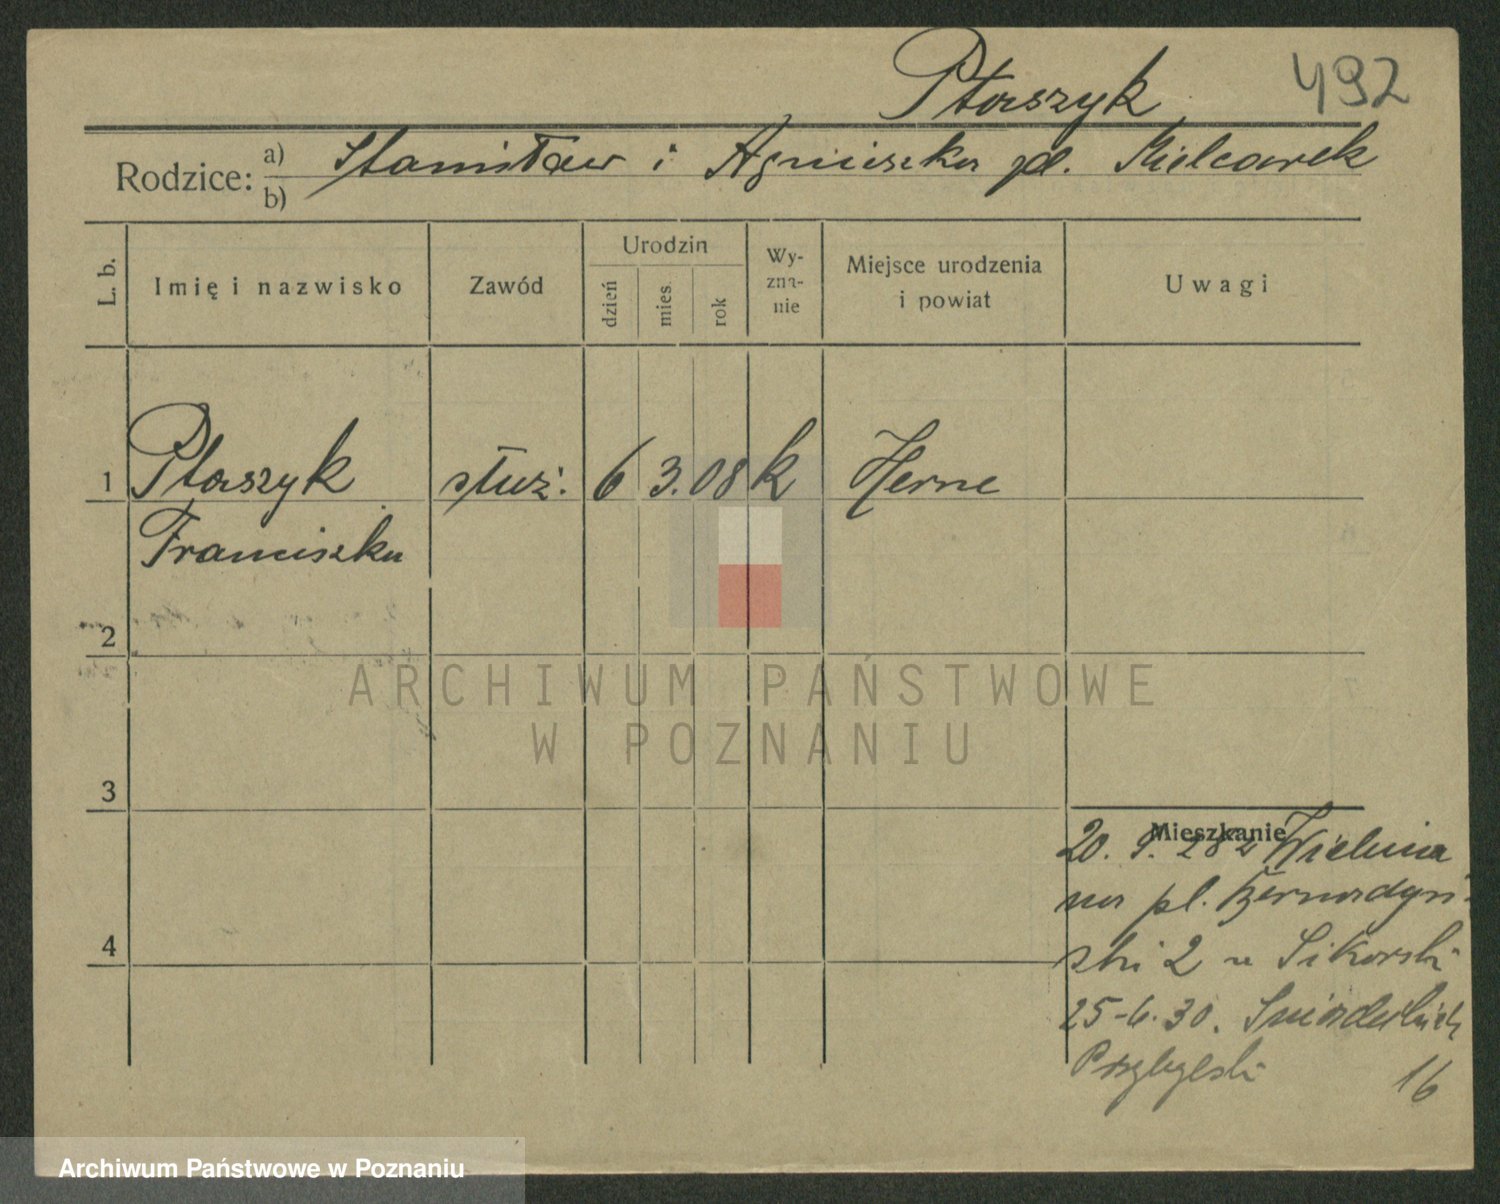 Ptaszyk 492
Rodzice: a) Stanisław i Agnieszka Mielcarek
b)
L. b. Imię i nazwisko Zawód Urodzin dzień mies. rok Wy-zna-nie Miejsce urodzenia i powiat Uwagi
1 Ptaszyk służ. 6 3. 08 k Herne
Franciszka
2
ARCHIWUM PAŃSTWOWE
W POZNANIU
3
Mieszkanie
20. 9. 28 z Wielunia
na pl. Bernardyń-
ski 2 u Sikorski
4
25-6.30. Śniadeckich
Przybylski 16
Archiwum Państwowe w Poznaniu